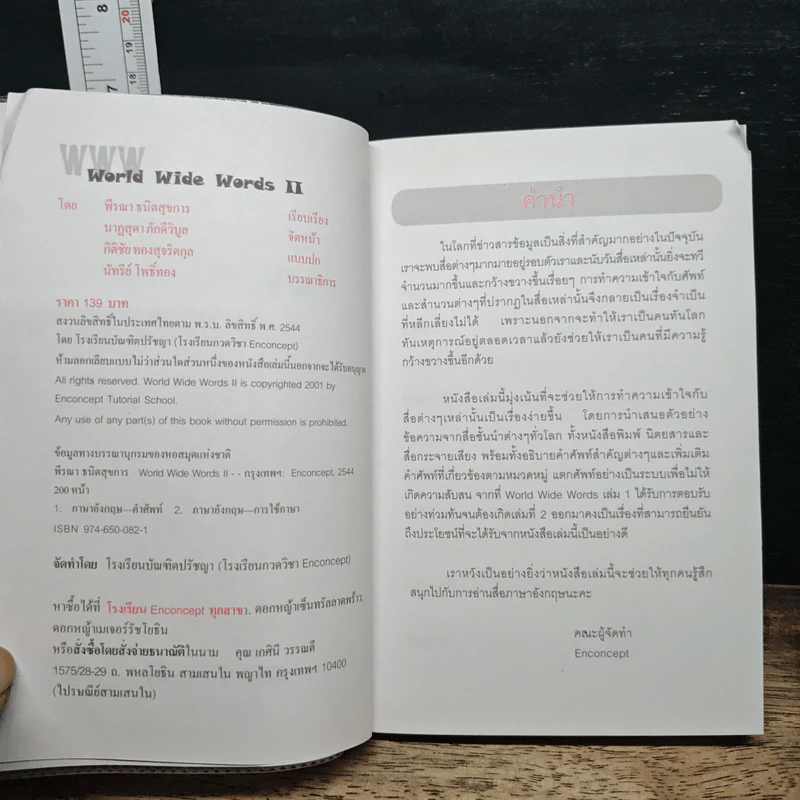 8
20
19
18
7
WWW
World Wide Words II
โดย พีรณา ธนิตสุขการ เรียบเรียง
นาฏสุดา ภักดีวิบูล จัดหน้า
กิติชัย ทองสุจริตกุล แบบปก
นัทรีย์ โพธิ์ทอง บรรณาธิการ
ราคา 139 บาท
สงวนลิขสิทธิ์ในประเทศไทยตาม พ.ร.บ. ลิขสิทธิ์ พ.ศ. 2544
โดย โรงเรียนบัณฑิตปรัชญา (โรงเรียนกวดวิชา Enconcept)
ห้ามลอกเลียบแบบไม่ว่าส่วนใดส่วนหนึ่งของหนังสือเล่มนี้นอกจากจะได้รับอนุญาต
All rights reserved. World Wide Words II is copyrighted 2001 by
Enconcept Tutorial School.
Any use of any part(s) of this book without permission is prohibited.
ข้อมูลทางบรรณานุกรมของหอสมุดแห่งชาติ
พีรณา ธนิตสุขการ World Wide Words II - - กรุงเทพฯ: Enconcept, 2544
200 หน้า
1. ภาษาอังกฤษ—คำศัพท์ 2. ภาษาอังกฤษ—การใช้ภาษา
ISBN 974-650-082-1
จัดทำโดย โรงเรียนบัณฑิตปรัชญา (โรงเรียนกวดวิชา Enconcept)
หาซื้อได้ที่ โรงเรียน Enconcept ทุกสาขา, ดอกหญ้าเซ็นทรัลลาดพร้าว,
ดอกหญ้าเมเจอร์รัชโยธิน
หรือสั่งซื้อโดยสั่งจ่ายธนาณัติในนาม คุณ เกศินี วรรณดี
1575/28-29 ถ. พหลโยธิน สามเสนใน พญาไท กรุงเทพฯ 10400
(ไปรษณีย์สามเสนใน)
คำนำ
ในโลกที่ข่าวสารข้อมูลเป็นสิ่งที่สำคัญมากอย่างในปัจจุบัน
เราจะพบสื่อต่างๆมากมายอยู่รอบตัวเราและนับวันสื่อเหล่านั้นยิ่งจะทวี
จำนวนมากขึ้นและกว้างขวางขึ้นเรื่อยๆ การทำความเข้าใจกับศัพท์
และสำนวนต่างๆที่ปรากฏในสื่อเหล่านั้นจึงกลายเป็นเรื่องจำเป็น
ที่หลีกเลี่ยงไม่ได้ เพราะนอกจากจะทำให้เราเป็นคนทันโลก
ทันเหตุการณ์อยู่ตลอดเวลาแล้วยังช่วยให้เราเป็นคนที่มีความรู้
กว้างขวางขึ้นอีกด้วย
หนังสือเล่มนี้มุ่งเน้นที่จะช่วยให้การทำความเข้าใจกับ
สื่อต่างๆเหล่านั้นเป็นเรื่องง่ายขึ้น โดยการนำเสนอตัวอย่าง
ข้อความจากสื่อชั้นนำต่างๆทั่วโลก ทั้งหนังสือพิมพ์ นิตยสารและ
สื่อกระจายเสียง พร้อมทั้งอธิบายคำศัพท์สำคัญต่างๆและเพิ่มเติม
คำศัพท์ที่เกี่ยวข้องตามหมวดหมู่ แตกศัพท์อย่างเป็นระบบเพื่อไม่ให้
เกิดความสับสน จากที่ World Wide Words เล่ม 1 ได้รับการตอบรับ
อย่างท่วมท้นจนต้องเกิดเล่มที่ 2 ออกมาคงเป็นเรื่องที่สามารถยืนยัน
ถึงประโยชน์ที่จะได้รับจากหนังสือเล่มนี้เป็นอย่างดี
เราหวังเป็นอย่างยิ่งว่าหนังสือเล่มนี้จะช่วยให้ทุกคนรู้สึก
สนุกไปกับการอ่านสื่อภาษาอังกฤษนะคะ
คณะผู้จัดทำ
Enconcept